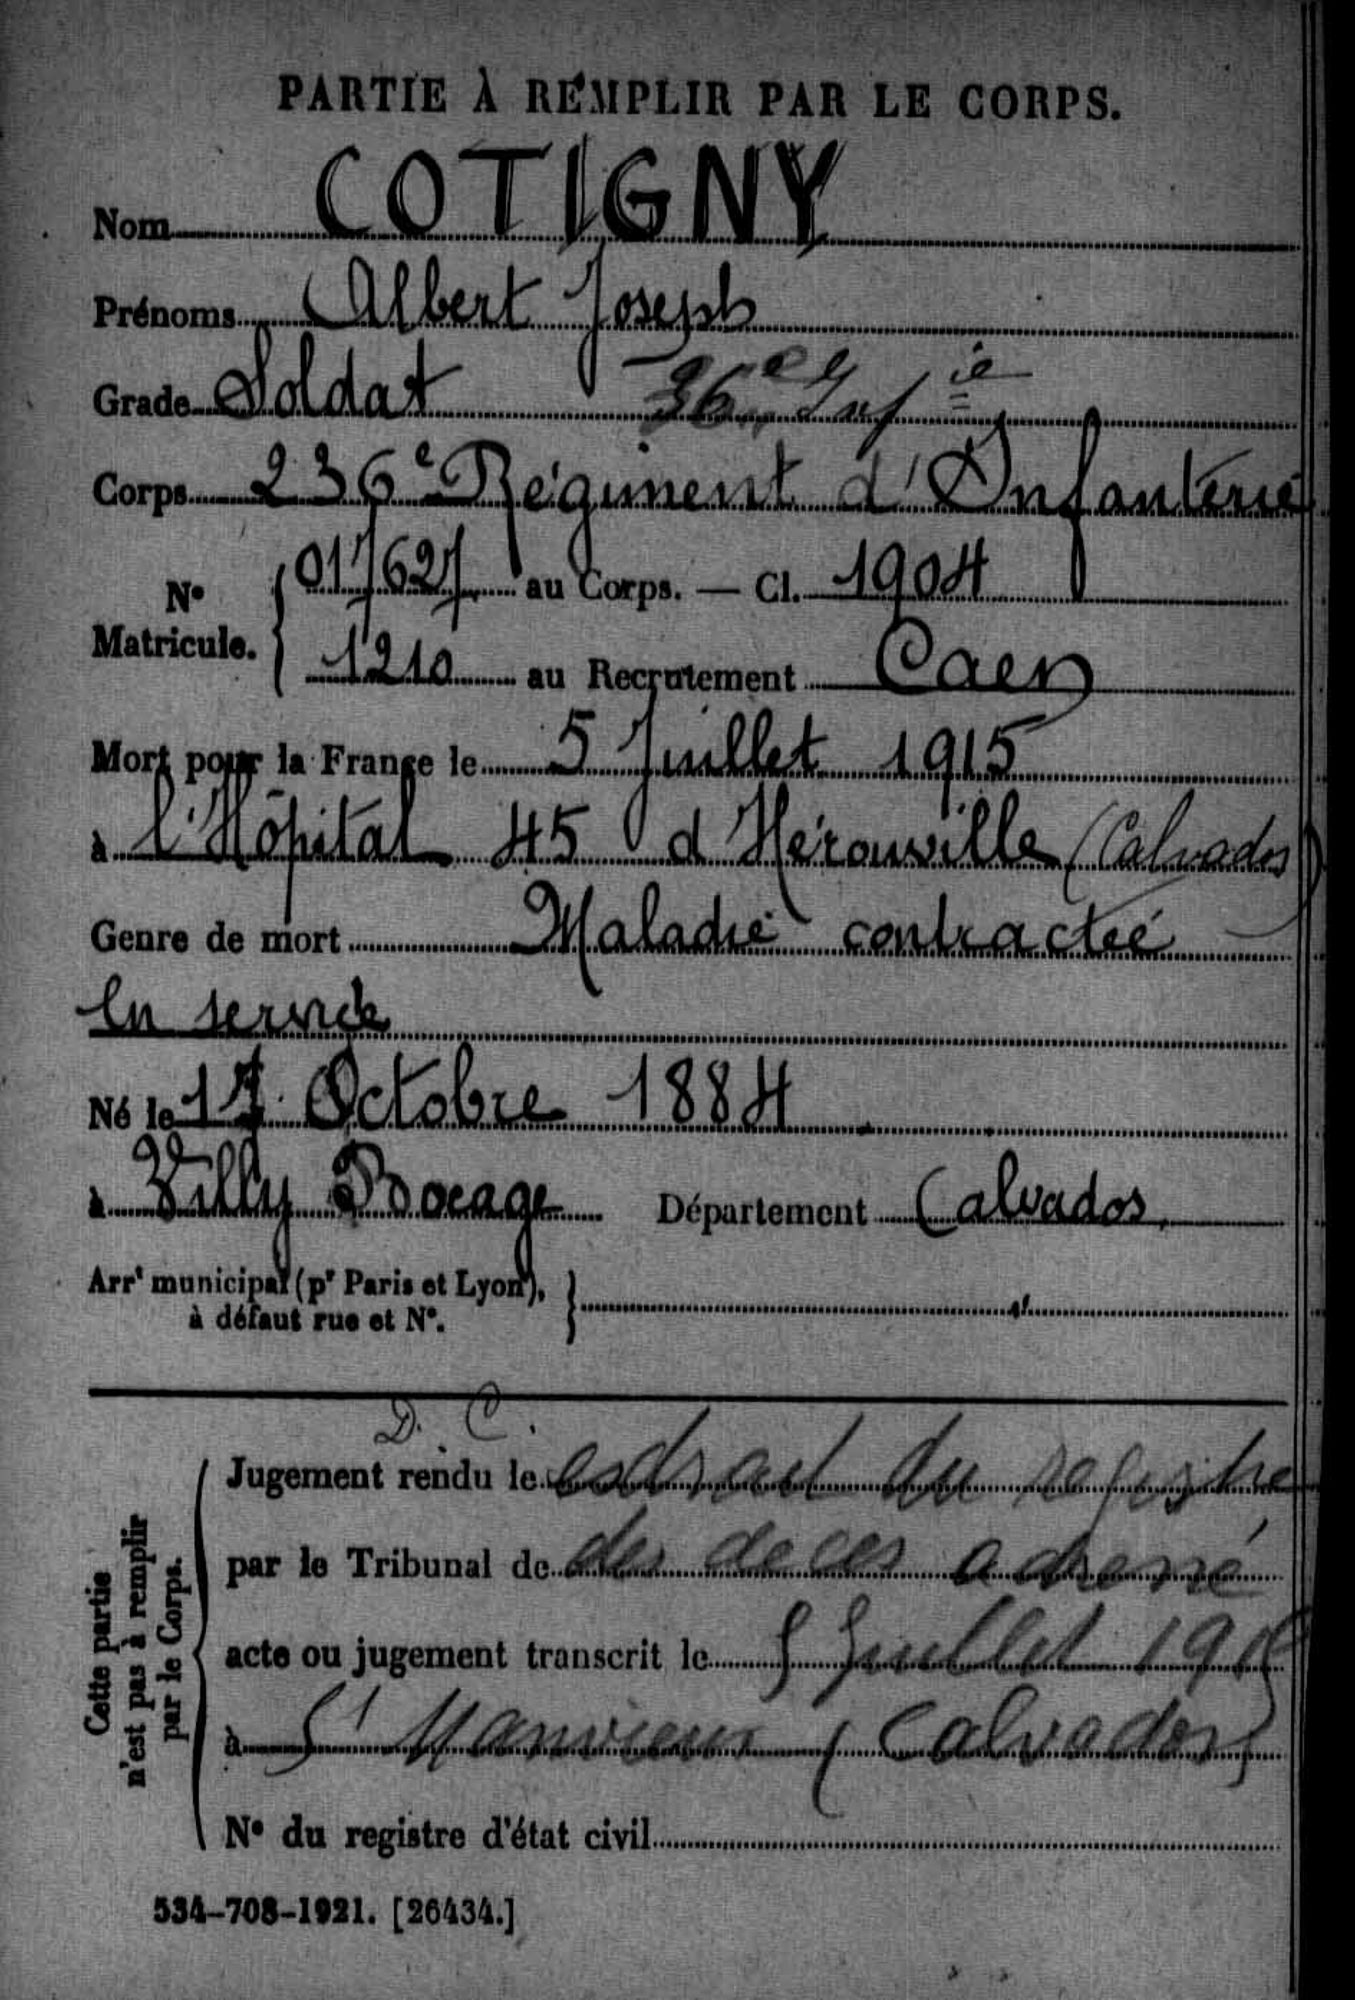 PARTIE À REMPLIR PAR LE CORPS.
Nom COTIGNY
Prénoms Albert Joseph
Grade Soldat 36e Infie
Corps 236e Régiment d'Infanterie
No Matricule. { 017627 au Corps. — Cl. 1904
1210 au Recrutement Caen
Mort pour la France le 5 Juillet 1915
à l'Hôpital 45 d'Hérouville (Calvados)
Genre de mort Maladie contractée
en service
Né le 17 Octobre 1884
à Villy Bocage Département Calvados
Arrt municipal (pr Paris et Lyon), à défaut rue et No. }
D. C.
Cette partie n'est pas à remplir par le Corps.
Jugement rendu le extrait du registre
par le Tribunal de des deces adressé
acte ou jugement transcrit le 5 Juillet 1915
à St Manvieux (Calvados)
No du registre d'état civil
534-708-1921. [26434.]